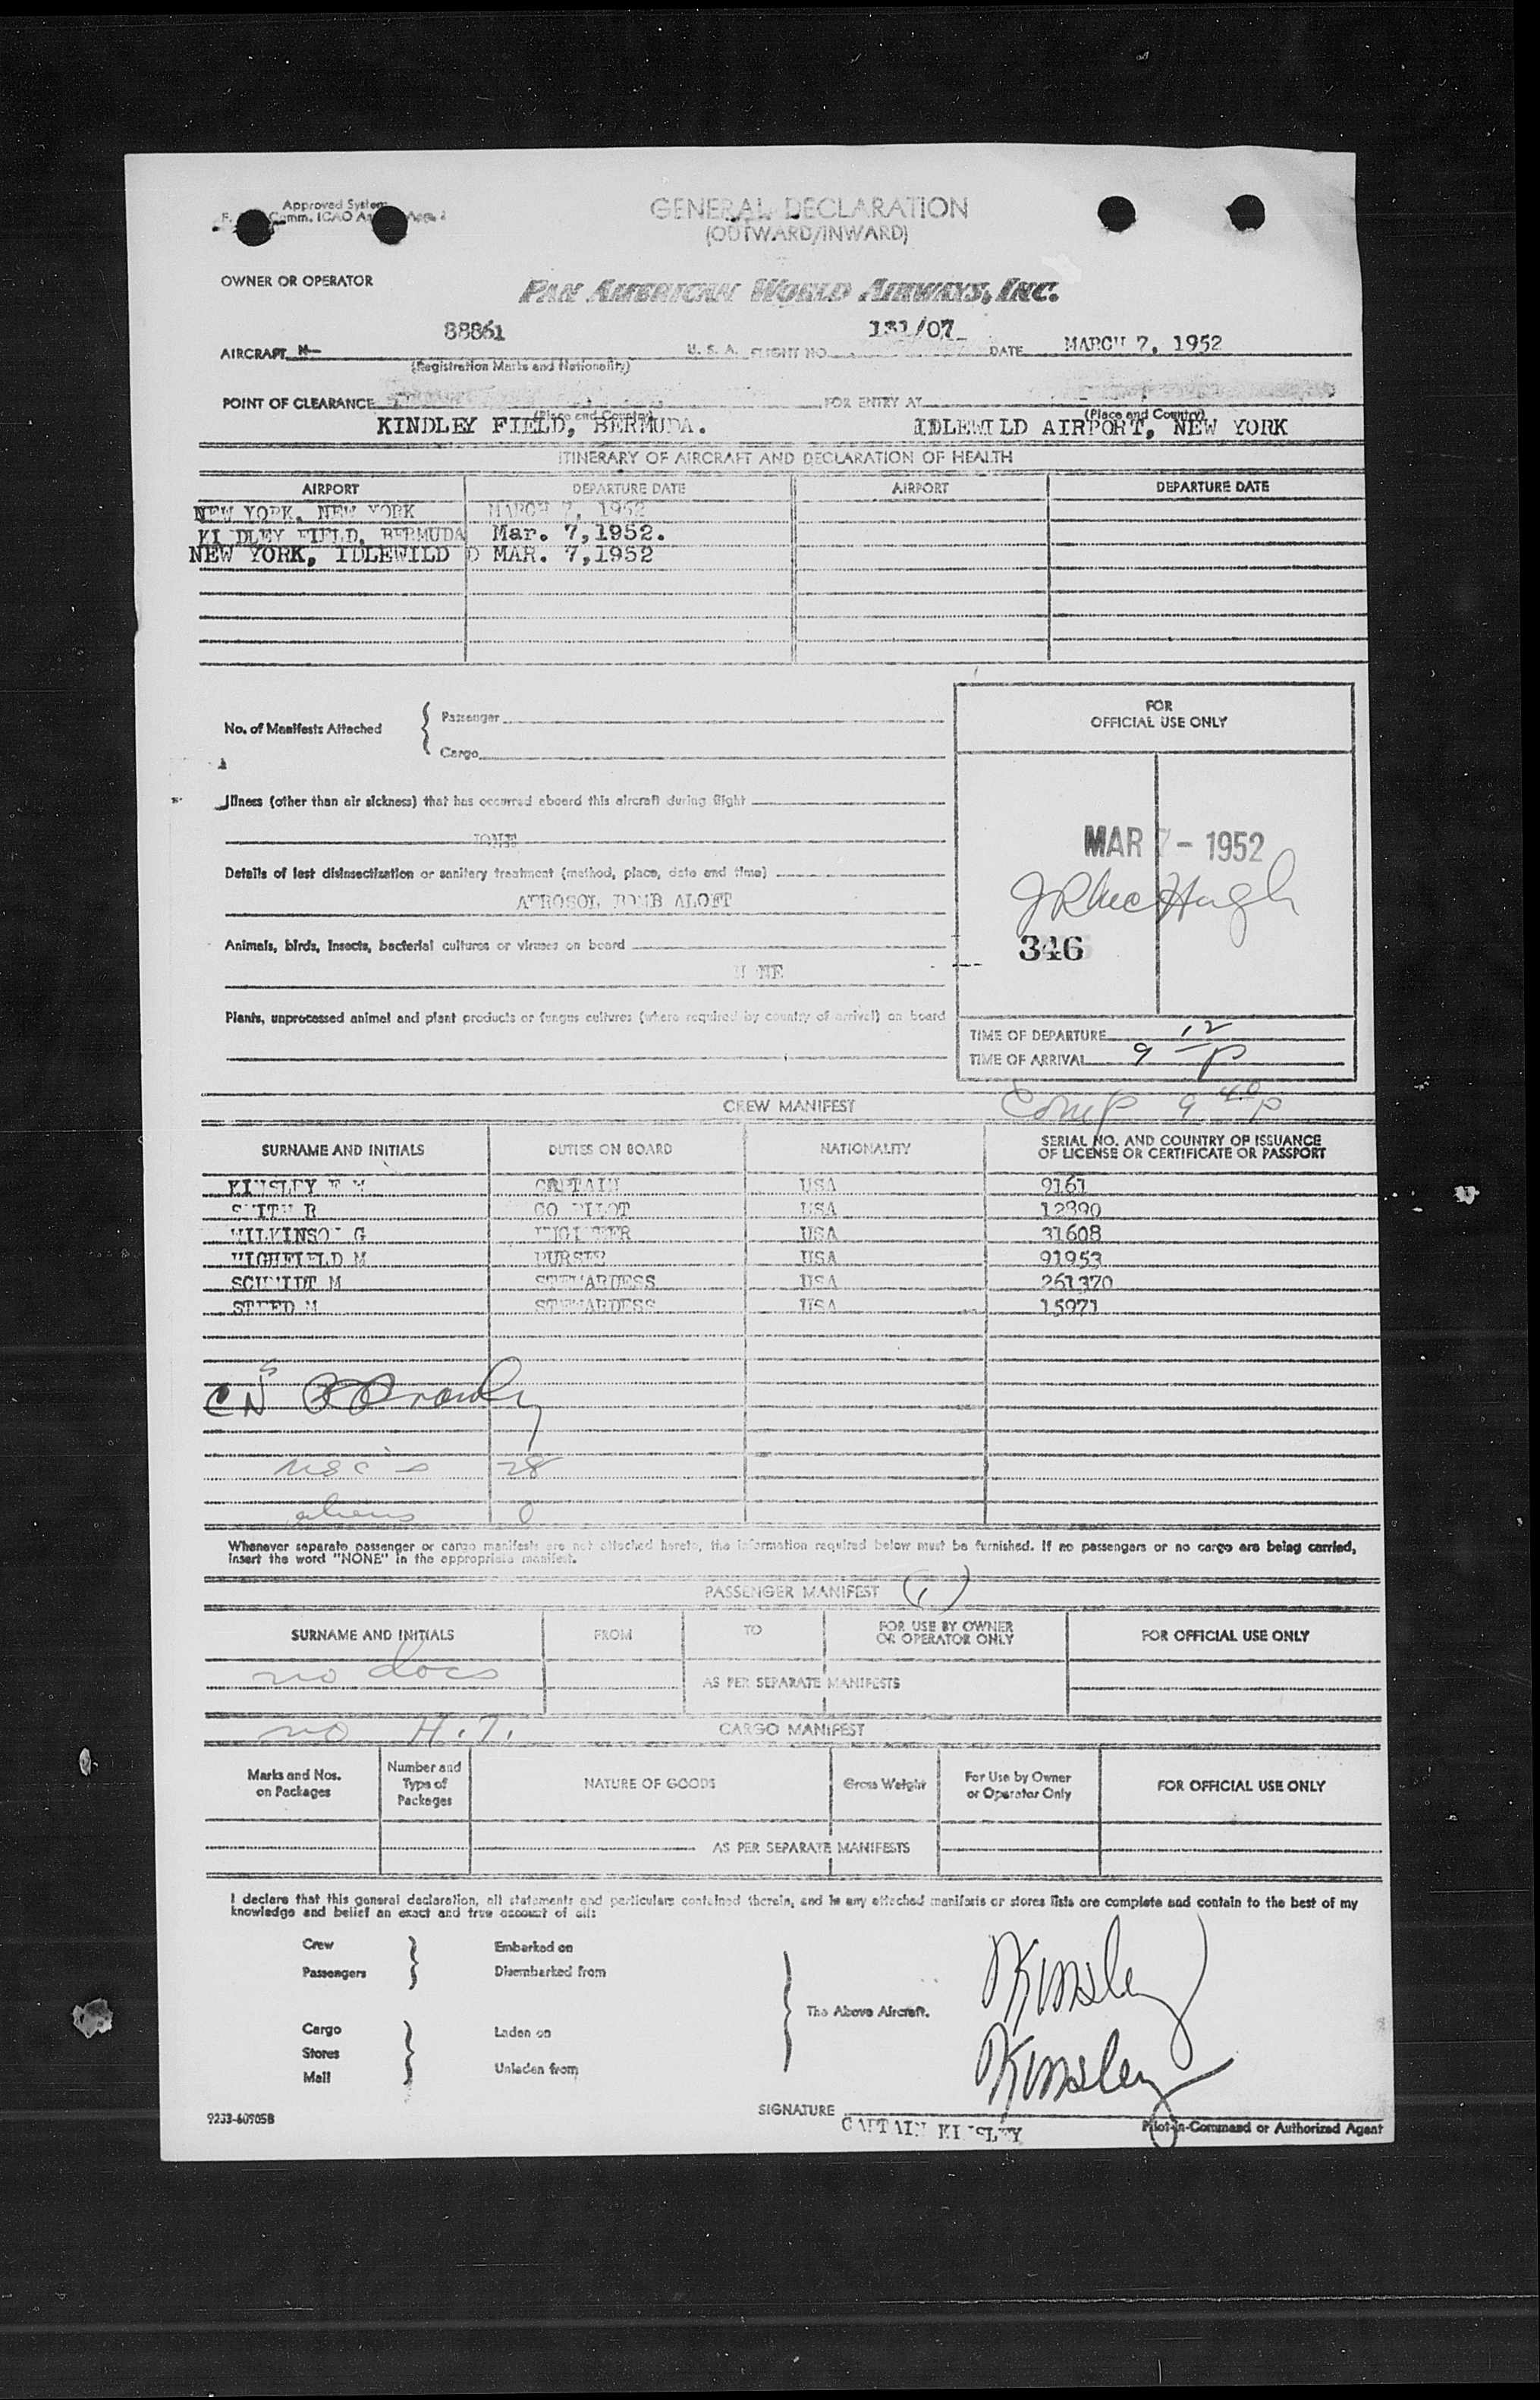 Approved System
Comm. ICAO
GENERAL DECLARATION
(OUTWARD/INWARD)
OWNER OR OPERATOR
PAN AMERICAN WORLD AIRWAYS, INC.
AIRCRAFT N- 88861 U. S. A. FLIGHT NO. 131/07 DATE MARCH 7, 1952
(Registration Marks and Nationality)
POINT OF CLEARANCE FOR ENTRY AT
(Place and Country) (Place and Country)
KINDLEY FIELD, BERMUDA. IDLEWILD AIRPORT, NEW YORK
ITINERARY OF AIRCRAFT AND DECLARATION OF HEALTH
AIRPORT DEPARTURE DATE AIRPORT DEPARTURE DATE
NEW YORK, NEW YORK MARCH 7, 1952
KI DLEY FIELD, BERMUDA Mar. 7,1952.
NEW YORK, IDLEWILD D MAR. 7,1952
FOR
OFFICIAL USE ONLY
No. of Manifests Attached
Passenger
Cargo
Illness (other than air sickness) that has occurred aboard this aircraft during flight
NONE
Details of last disinsectization or sanitary treatment (method, place, date and time)
AEROSOL BOMB ALOFT
Animals, birds, insects, bacterial cultures or viruses on board
N NE
Plants, unprocessed animal and plant products or fungus cultures (where required by country of arrival) on board
MAR 7 - 1952
JR McHugh
346
TIME OF DEPARTURE
TIME OF ARRIVAL 9 12 P
CREW MANIFEST Comp 9 40 P
SURNAME AND INITIALS DUTIES ON BOARD NATIONALITY SERIAL NO. AND COUNTRY OF ISSUANCE
OF LICENSE OR CERTIFICATE OR PASSPORT
KINSLEY F M CAPTAIN USA 9161
SMITH R CO PILOT USA 12890
WILKINSON G ENGINEER USA 31608
HIGHFIELD M PURSER USA 91953
SCHMIDT M STEWARDESS USA 261370
STEED M STEWARDESS USA 15971
usc's 28
aliens 0
Whenever separate passenger or cargo manifests are not attached hereto, the information required below must be furnished. If no passengers or no cargo are being carried,
insert the word "NONE" in the appropriate manifest.
PASSENGER MANIFEST (1)
SURNAME AND INITIALS FROM TO FOR USE BY OWNER
OR OPERATOR ONLY FOR OFFICIAL USE ONLY
no docs
AS PER SEPARATE MANIFESTS
no H.T. CARGO MANIFEST
Marks and Nos.
on Packages
Number and
Type of
Packages
NATURE OF GOODS
Gross Weight
For Use by Owner
or Operator Only
FOR OFFICIAL USE ONLY
AS PER SEPARATE MANIFESTS
I declare that this general declaration, all statements and particulars contained therein, and in any attached manifests or stores lists are complete and contain to the best of my
knowledge and belief an exact and true account of all:
Crew Embarked on
Passengers Disembarked from
The Above Aircraft.
Cargo Laden on
Stores
Mail Unladen from
Kinsley
Kinsley
9233-60905B
SIGNATURE
CAPTAIN KINSLEY Pilot-in-Command or Authorized Agent